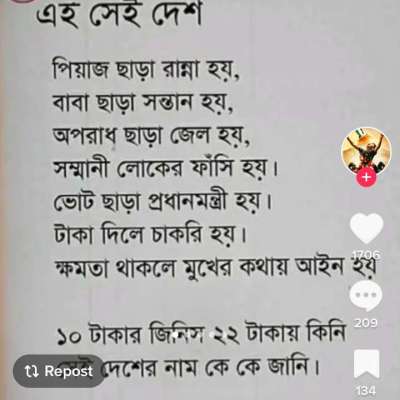 এই সেই দেশ
পিয়াজ ছাড়া রান্না হয়,
বাবা ছাড়া সন্তান হয়,
অপরাধ ছাড়া জেল হয়,
সম্মানী লোকের ফাঁসি হয়।
ভোট ছাড়া প্রধানমন্ত্রী হয়।
টাকা দিলে চাকরি হয়।
ক্ষমতা থাকলে মুখের কথায় আইন হয়
১০ টাকার জিনিস ২২ টাকায় কিনি
দেশের নাম কে কে জানি।
1706
209
Repost
134